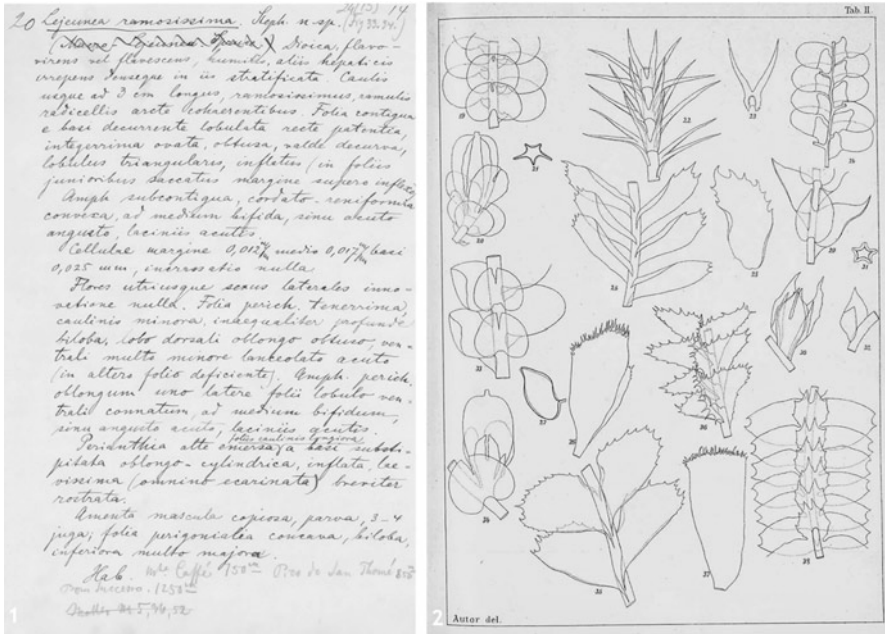 24(13) 14
20 Lejeunea ramosissima. Steph. n. sp. (Fig 33.34.)
Dioica, flavo-
virens vel flavescens, humilis, aliis hepaticis
irrepens denseque in iis stratificata. Caulis
usque ad 3 cm longus, ramosissimus, ramulis
radicellis arcte cohaerentibus. Folia contigua
e basi decurrente lobulata recte patentia,
integerrima ovata, obtusa, valde decurva,
lobulus triangularis, inflatus (in foliis
junioribus saccatus margine supero inflexo)
Amph subcontigua, cordato-reniformia
convexa, ad medium bifida, sinu acuto
angusto, laciniis acutis.
Cellulae margine 0,012 medio 0,017 basi
0,025 mm, incrassatio nulla.
Flores utriusque sexus laterales inno-
vatione nulla. Folia perich. tenerrima,
caulinis minora, inaequaliter profunde
biloba, lobo dorsali oblongo obtuso, ven-
trali multo minore lanceolato acuto
(in altero folio deficiente). Amph. perich.
oblongum uno latere folii lobulo ven-
trali connatum, ad medium bifidum,
sinu angusto acuto, laciniis acutis.
foliis caulinis longiora
Perianthia alte emersa, a basi substi-
pitata oblongo-cylindrica, inflata, lae-
vissima (omnino ecarinata) breviter
rostrata.
Amenta mascula copiosa, parva, 3-4
juga; folia perigonialia concava, biloba,
inferiora multo majora.
Hab. Mte Caffé 750m Pico de San Thomé
1250m
Moller No 5, 36, 52
1
Tab. II.
19
22
23
24
20
21
26
25
30
31
33
27
28
36
30
32
34
35
37
38
Autor del.
2